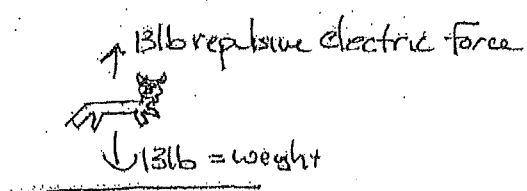 13lb repulsive electric force
13lb = weight